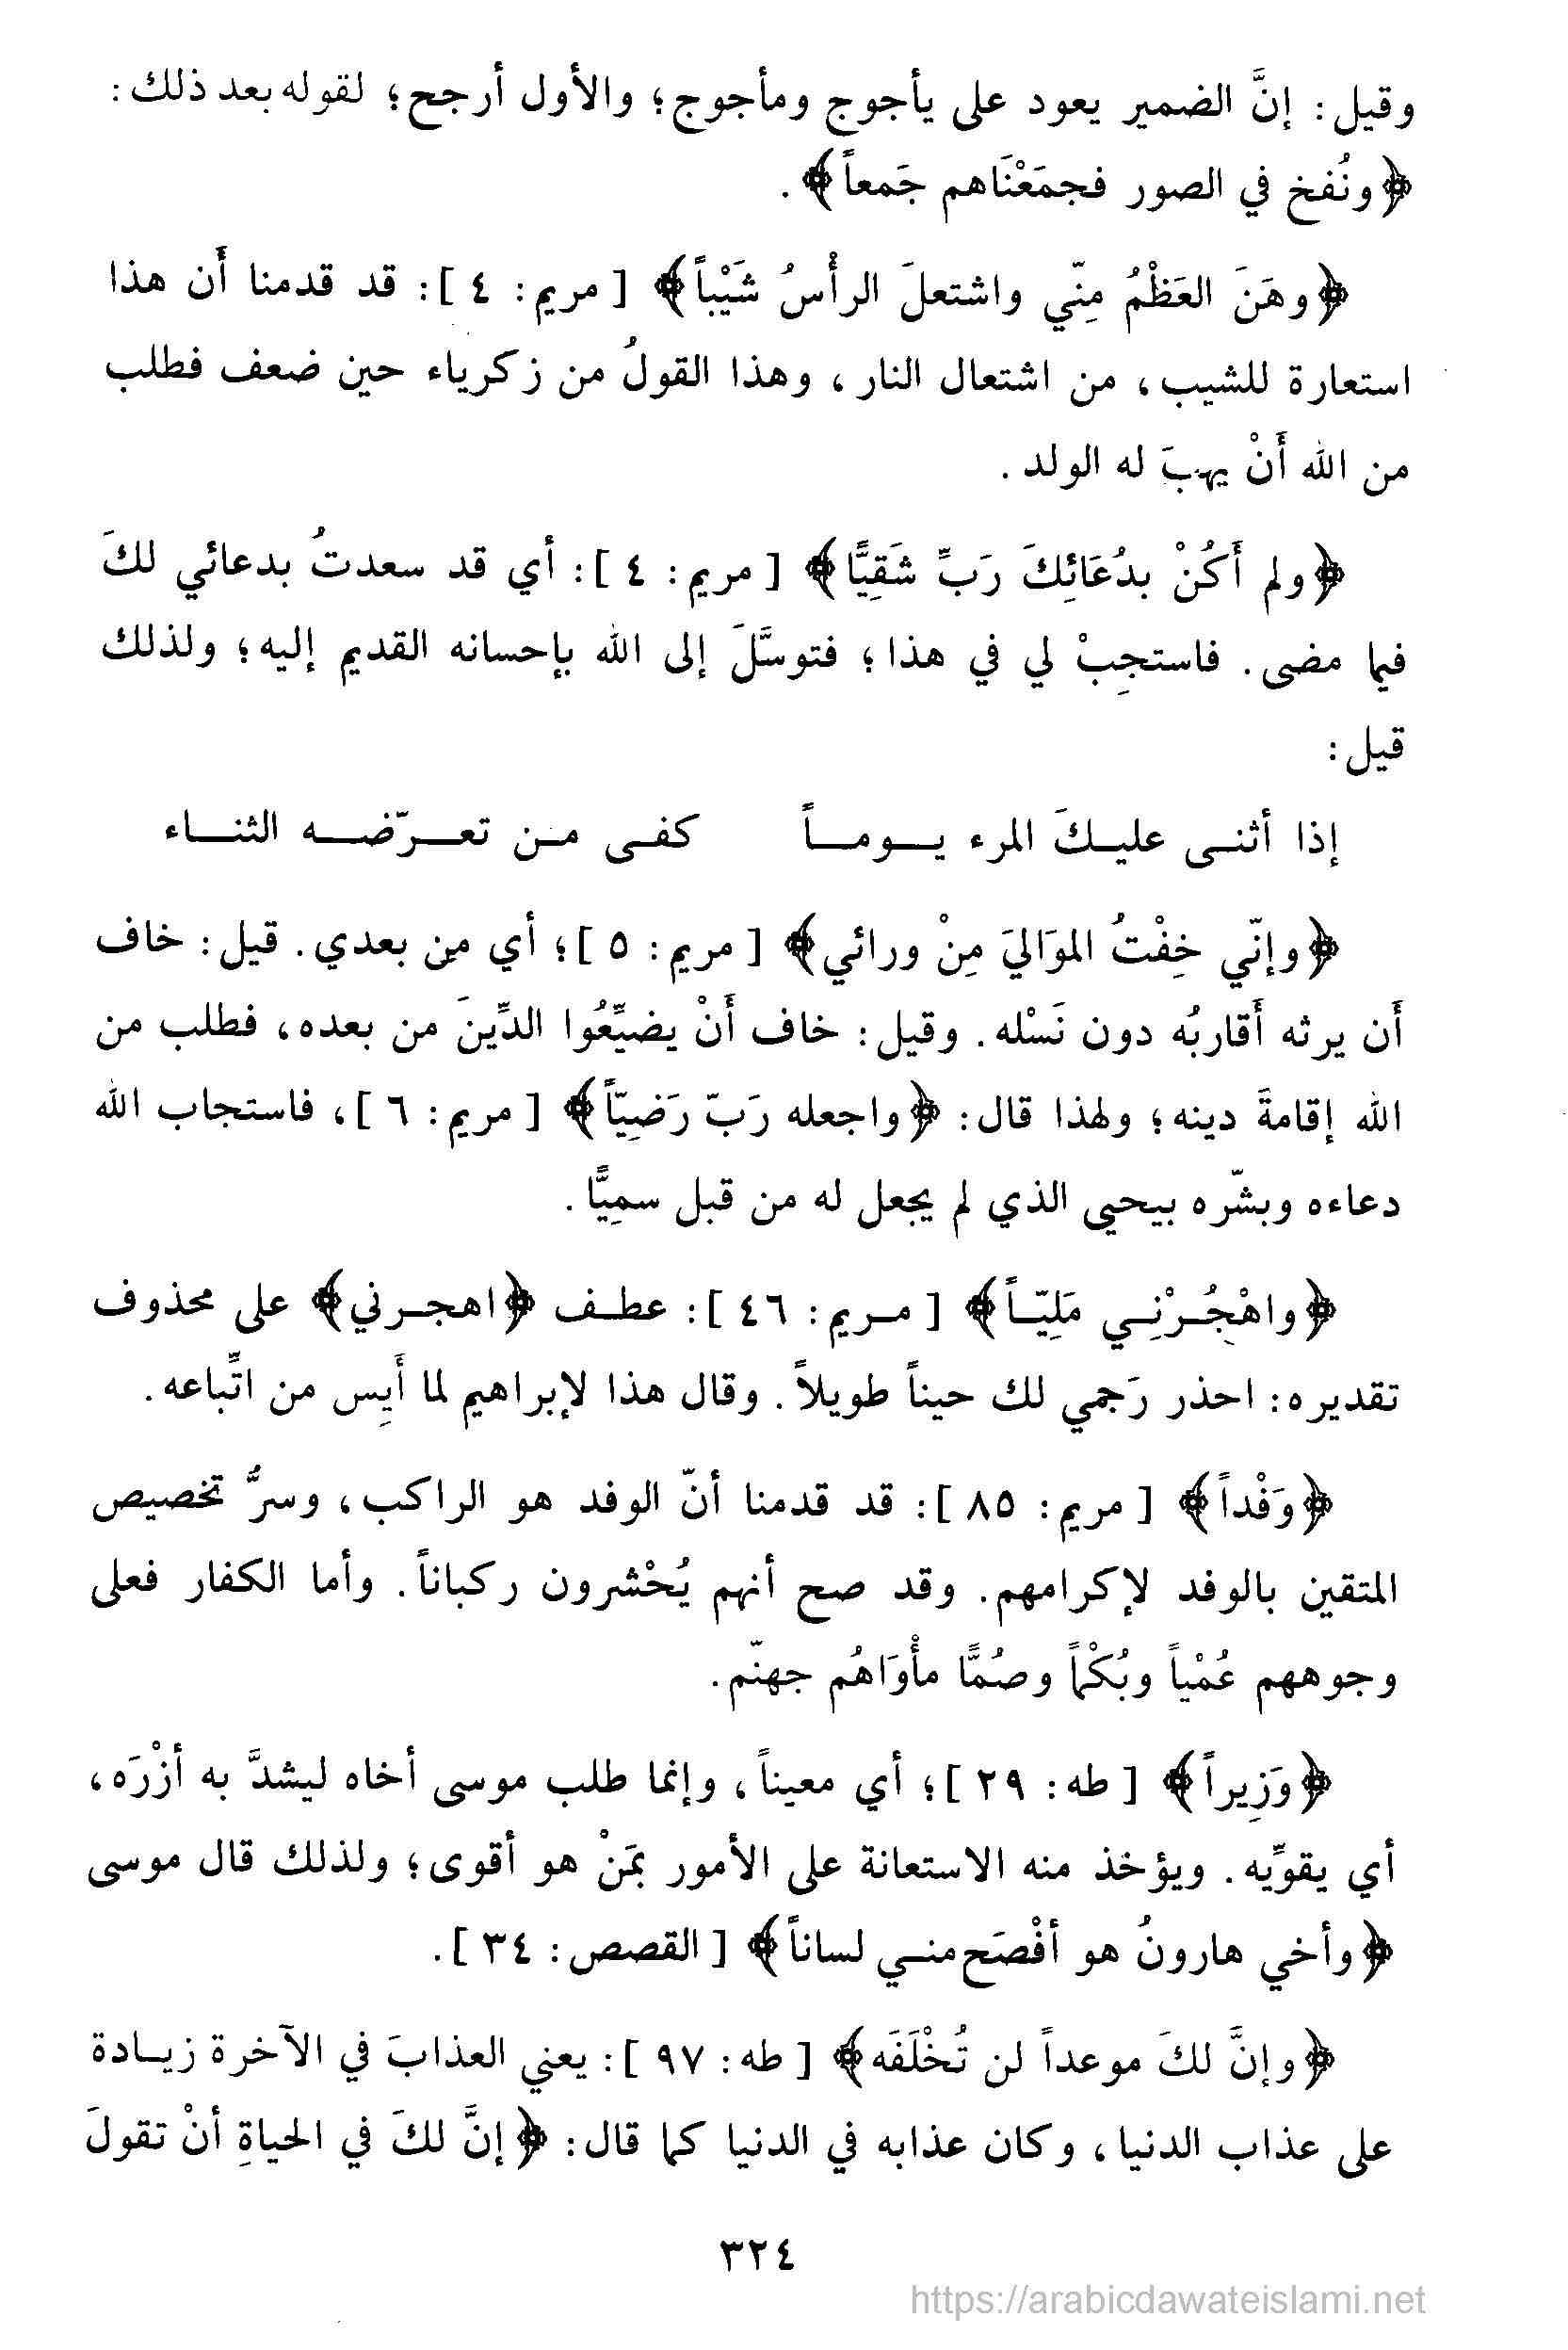 وقيل: إنَّ الضمير يعود على يأجوج ومأجوج؛ والأول أرجح؛ لقوله بعد ذلك:
﴿ونُفخ في الصور فجمَعْنَاهم جَمعاً﴾.
﴿وهَنَ العَظْمُ مِنّي واشتعلَ الرأْسُ شَيْباً﴾ [ مريم: ٤ ]: قد قدمنا أَن هذا
استعارة للشيب، من اشتعال النار، وهذا القولُ من زكرياء حين ضعف فطلب
من الله أَنْ يهبَ له الولد.
﴿ولم أَكُنْ بدُعَائِكَ رَبِّ شَقِيًّا﴾ [ مريم: ٤ ]: أي قد سعدتُ بدعائي لكَ
فيما مضى. فاستجِبْ لي في هذا؛ فتوسَّلَ إلى الله بإحسانه القديم إليه؛ ولذلك
قيل:
إذا أثنـى عليـكَ المرء يـومـاً كفـى مـن تعـرّضـه الثنـاء
﴿وإنّي خِفْتُ الموَاليَ مِنْ ورائي﴾ [ مريم: ٥ ]؛ أي مِن بعدي. قيل: خاف
أَن يرثه أَقاربُه دون نَسْله. وقيل: خاف أَنْ يضيِّعُوا الدِّينَ من بعده، فطلب من
الله إقامةَ دينه؛ ولهذا قال: ﴿واجعله رَبّ رَضِيّاً﴾ [ مريم: ٦ ]، فاستجاب الله
دعاءه وبشّره بيحيى الذي لم يجعل له من قبل سمِيًّا.
﴿واهْجُـرْنِـي مَلِيّـاً﴾ [ مـريم: ٤٦ ]: عطـف ﴿اهجـرني﴾ على محذوف
تقديره: احذر رَجمي لك حيناً طويلاً. وقال هذا لإبراهيم لما أَيِس من اتِّباعه.
﴿وَفْداً﴾ [ مريم: ٨٥ ]: قد قدمنا أنّ الوفد هو الراكب، وسرُّ تخصيص
المتقين بالوفد لإكرامهم. وقد صح أنهم يُحْشرون ركباناً. وأما الكفار فعلى
وجوههم عُمْياً وبُكْماً وصُمًّا مأْوَاهُم جهنّم.
﴿وَزِيراً﴾ [ طه: ٢٩ ]؛ أي معيناً، وإنما طلب موسى أخاه ليشدَّ به أزْرَه،
أي يقوِّيه. ويؤخذ منه الاستعانة على الأمور بمَنْ هو أقوى؛ ولذلك قال موسى
﴿وأخي هارونُ هو أفْصَح منـي لساناً﴾ [ القصص: ٣٤ ].
﴿وإنَّ لكَ موعداً لن تُخْلَفَه﴾ [ طه: ٩٧ ]: يعني العذابَ في الآخرة زيـادة
على عذاب الدنيا، وكان عذابه في الدنيا كما قال: ﴿إنَّ لكَ في الحياةِ أنْ تقولَ
٣٢٤
https://arabicdawateislami.net